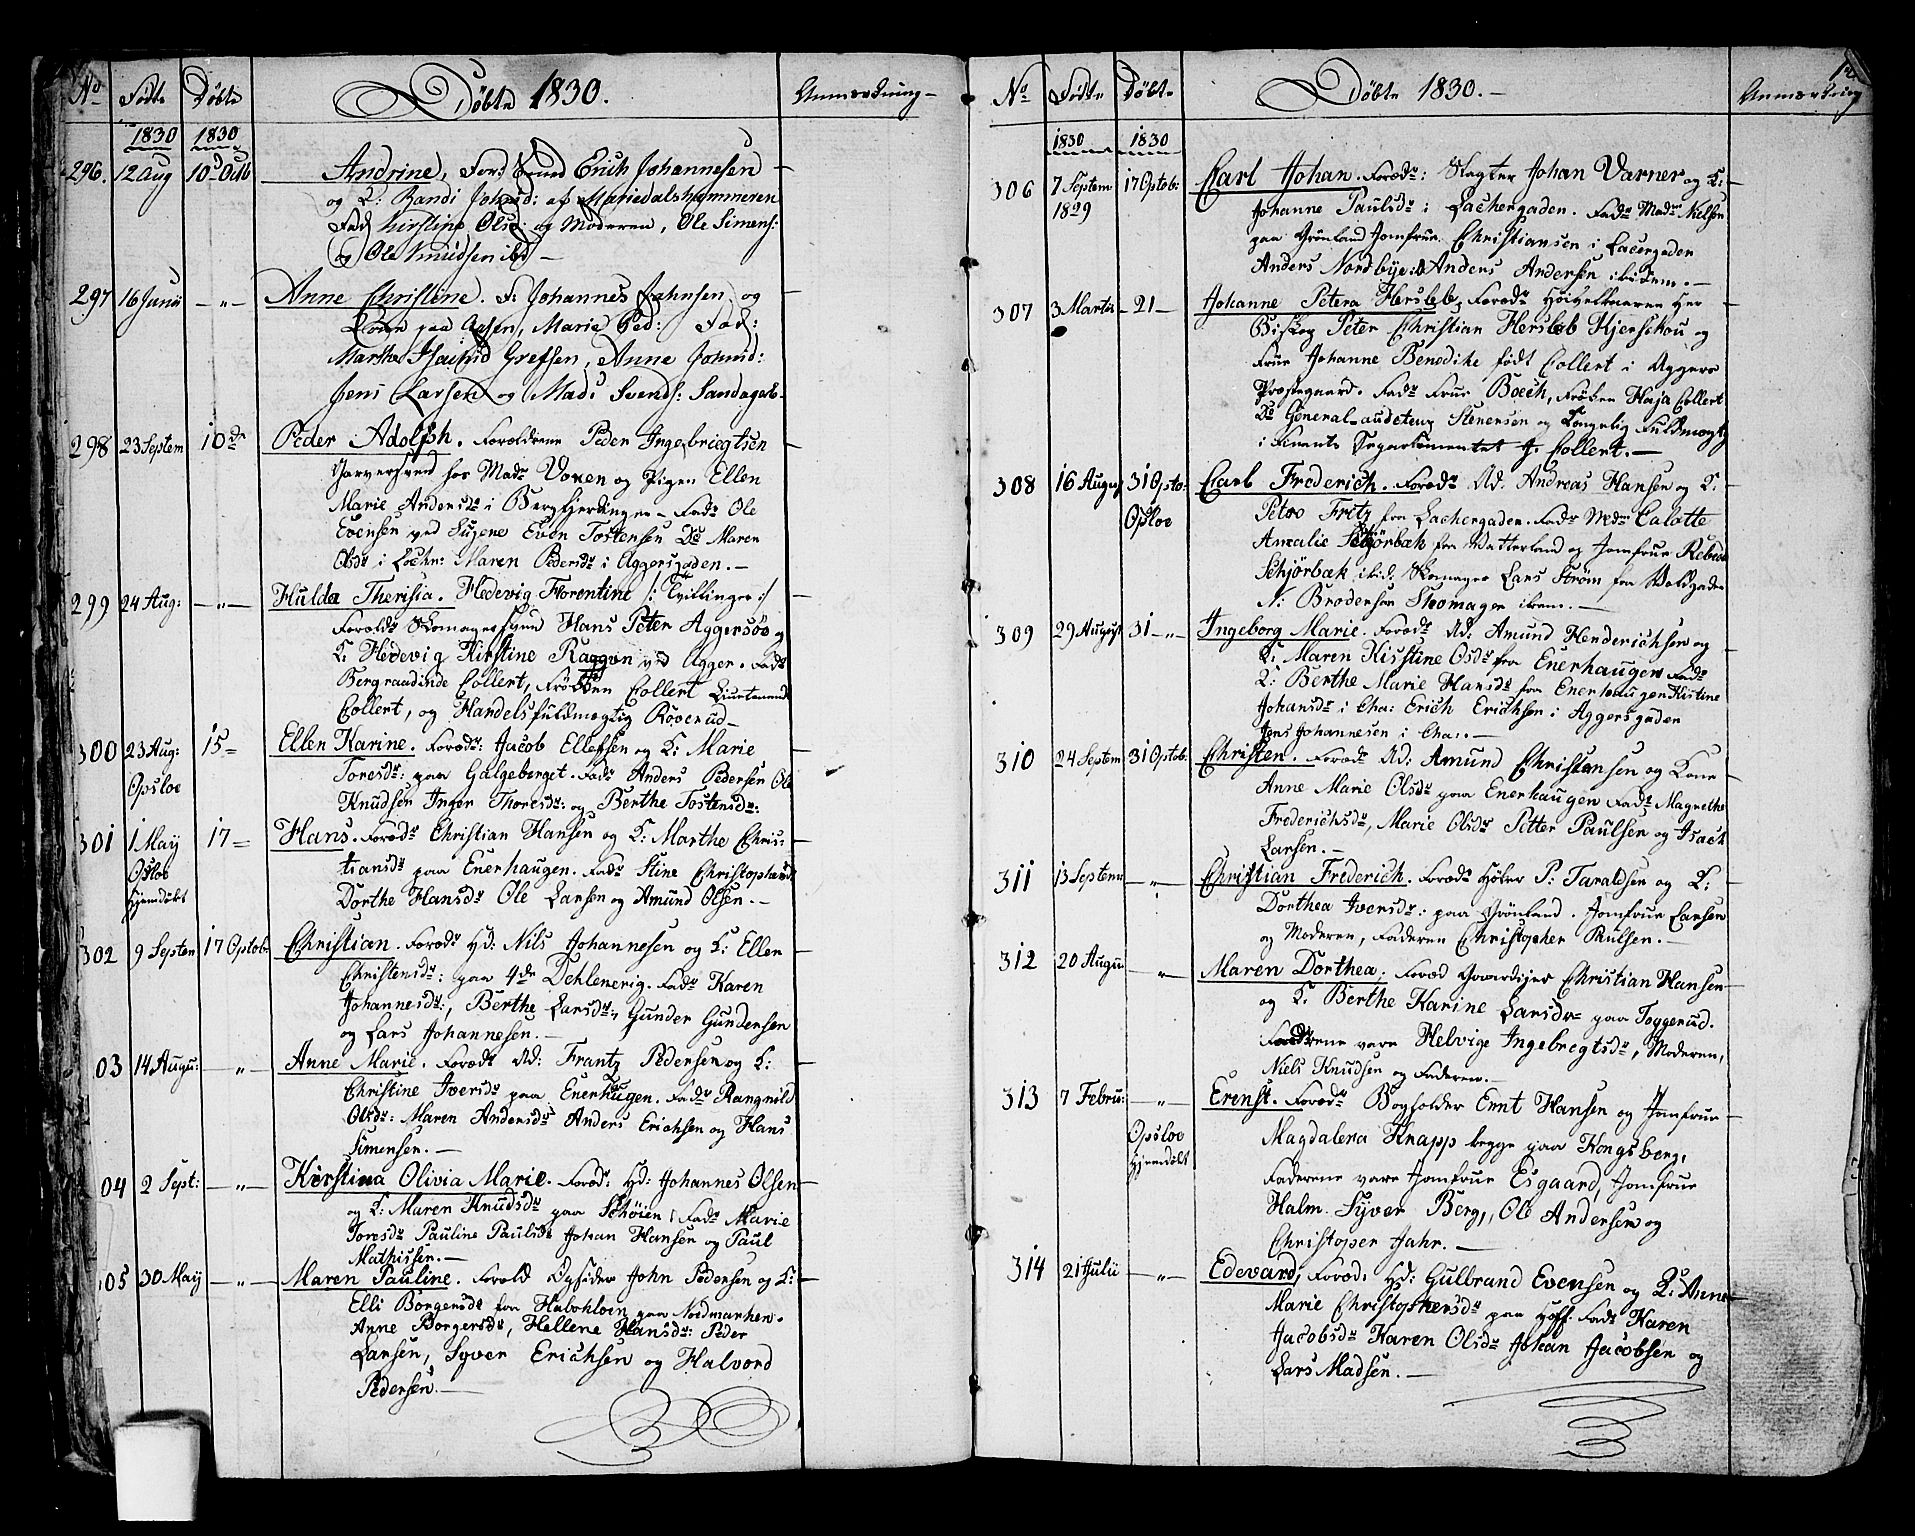 No Fødte Døbte Døbte 1830. Anmærkning
1830 1830
296. 12 Aug 10d Octb Andrine, For: Svend Erich Johannesen
og K: Randi Johnsd: af Mariedalshammeren
Fad Kirstine Olsd: og Moderen, Ole Simens:
og Ole Knudsen ibd
297 16 Junii — " — Anne Christine. F: Johannes Jahnsen, og
Kone paa Aasen, Marie Ped: Fad:
Marthe Grefsen, Anne Jonsd:
Jens Larsen og Mads Svends: Sandagerb.
298 23 Septem 10de Peder Adolph. Forældrene Peder Ingebriegtsen
Garversvend hos Madm Voxen og Pigen Ellen
Marie Andersdr i Bergfjerdingen – Fadr Ole
Evensen ved Sugene Even Tostensen Do Maren
Olsdr i Lochr: Maren Pedersdr i Aggersgaden.
299 24 Aug: — " — Hulda Therisia. Hedevig Florentine /: Tvillinger :/
Foreldr Skomagersvend Hans Peter Aggersøe og
K. Hedevig Kirstine Raggen ved Agger. Fadr
Bergraadinde Collert, Frøken Collert Liutenand
Collert, og Handelsfuldmægtig Røverud
300 23 Aug: 15 = Ellen Karine. Forædr: Jacob Ellefsen og K: Marie
Opsloe Toresdr: paa Galgeberget. Fadr Anders Pedersen Ole
Knudsen Inger Thoresdr: og Berthe Tostensdr:
301 1 May 17 = Hans. Forædr Christian Hansen og K: Marthe Chris-
Opsloe tiansdr paa Enerhaugen. Fadr Stine Christophersd
Hjemdøbt Dorthe Hansdr Ole Larsen og Amund Olsen.
302 9 Septem 17 Optob: Christian. Forædr Hd: Nils Johannesen og K: Ellen
Christensdr: paa 4de Dehlenerig. Fadr Karen
Johannesdr:, Berthe Larsdr:, Gunder Gundersen
og Lars Johannesen.
03 14 Augu: " Anne Marie. Forædr Ad: Frantz Pedersen og K:
Christine Iversdr paa Enerhugen. Fadr Rangnild
Olsdr: Maren Andersdr Anders Erichsen og Hans
Simensen.
04 2 Sept: — " — Kirstina Olivia Marie. Foræd: Hd: Johannes Olsen
og K: Maren Knudsdr paa Schøien, Fadr Marie
Toresdr Pauline Paulsdr Johan Hansen og Paul
Mathissen.
05 30 May — " — Maren Pauline. Foræld Opsider John Pedersen og K:
Elli Borgersdr fra paa Nordmarken.
Anne Borgersdr, Hellene Hansdr: Peder
Larsen, Syver Erichsen og Halvord
Pedersen.
No Fødte Døbte Døbte 1830. Anmærkning
1830 1830
306 7 Septem 17 Optob: Carl Johan. Forædr: Slagter Johan Varner og K:
1829 Johanne Paulsdr i Lachergaden. Fadr Madm Nelsen
paa Grønland Jomfrue Christiansen i Lacergaden
Anders Nordbye & Anders Andersen ibidem.
307 3 Martii 21 Johanne Petera Hersleb, Forædr Høivelbaaren Her
Biskop Peter Christian Hersleb Kjerschou og
Frue Johanne Benedikte født Collert i Aggers
Præstegaard. Fadr Frue Boeck, Frøken Kaja Collert
Do General-audeteur Stenersen og Kongelig Fuldmægtig
i Finants Departementet J. Collert.
308 16 August 31 Opto: Carl Frederich. Forædr Ad. Andreas Hansen og K.
Opsloe Petro Fritz fra Lachergaden. Fadr Mdm Calotte
Amalie Schjørbæk fra Vatterland og Jomfrue Rebica
Schjørbæk ibid. Skomager Lars Strøm fra Volsgaden
N: Brodersen Skomager ibiem.
309 29 August 31 — " — Ingeborg Marie. Forædr Ad: Amund Henderichsen og
K. Maren Kirstine Olsdr fra Enerhaugen Fadr
K: Berthe Marie Hansdr fra Enerhaugen Kirstine
Johansdr i Cha: Erich Erichsen i Aggersgaden
Jens Johannesen i Cha.
310 24 Septem 31 Optob: Christen. Forædr Ad: Amund Christensen og Kone
Anne Marie Olsdr paa Enerhaugen Fadr Magrethe
Frederichsdr, Marie Olsdr Petter Paulsen og Isach
Larsen.
311 13 Septem — " — Christian Frederich. Forædr Høker P: Taraldsen og K:
Dorthea Iversdr: paa Grønland. Jomfrue Larsen
og Moderen, Faderen Christopher Paulsen.
312 20 Augu: " Maren Dorthea. Foræd Gaardejer Christian Hansen
og K. Berthe Karine Larsdr paa Toggerud.
Fadderene vare Helvige Ingebregtsdr, Moderen,
Niels Knudsen og Faderen.
313 7 Febru: — " — Erenst. Forædr Bogholder Ernt Hansen og Jomfrue
Opsloe Magdalena Knapp begge paa Kongsberg,
Hjemdøbt Faderene vare Jomfrue Esgaard, Jomfrue
Halm. Syver Berg, Ole Andersen og
Christoper Jahr.
314 21 Julii — " — Edevard, Foræd: Hd: Gulbrand Evensen og K: Anne
Marie Christophersdr paa Hoff. Fadr Karen
Jacobsdr Karen Olsdr Johan Jacobsen og
Lars Madsen.